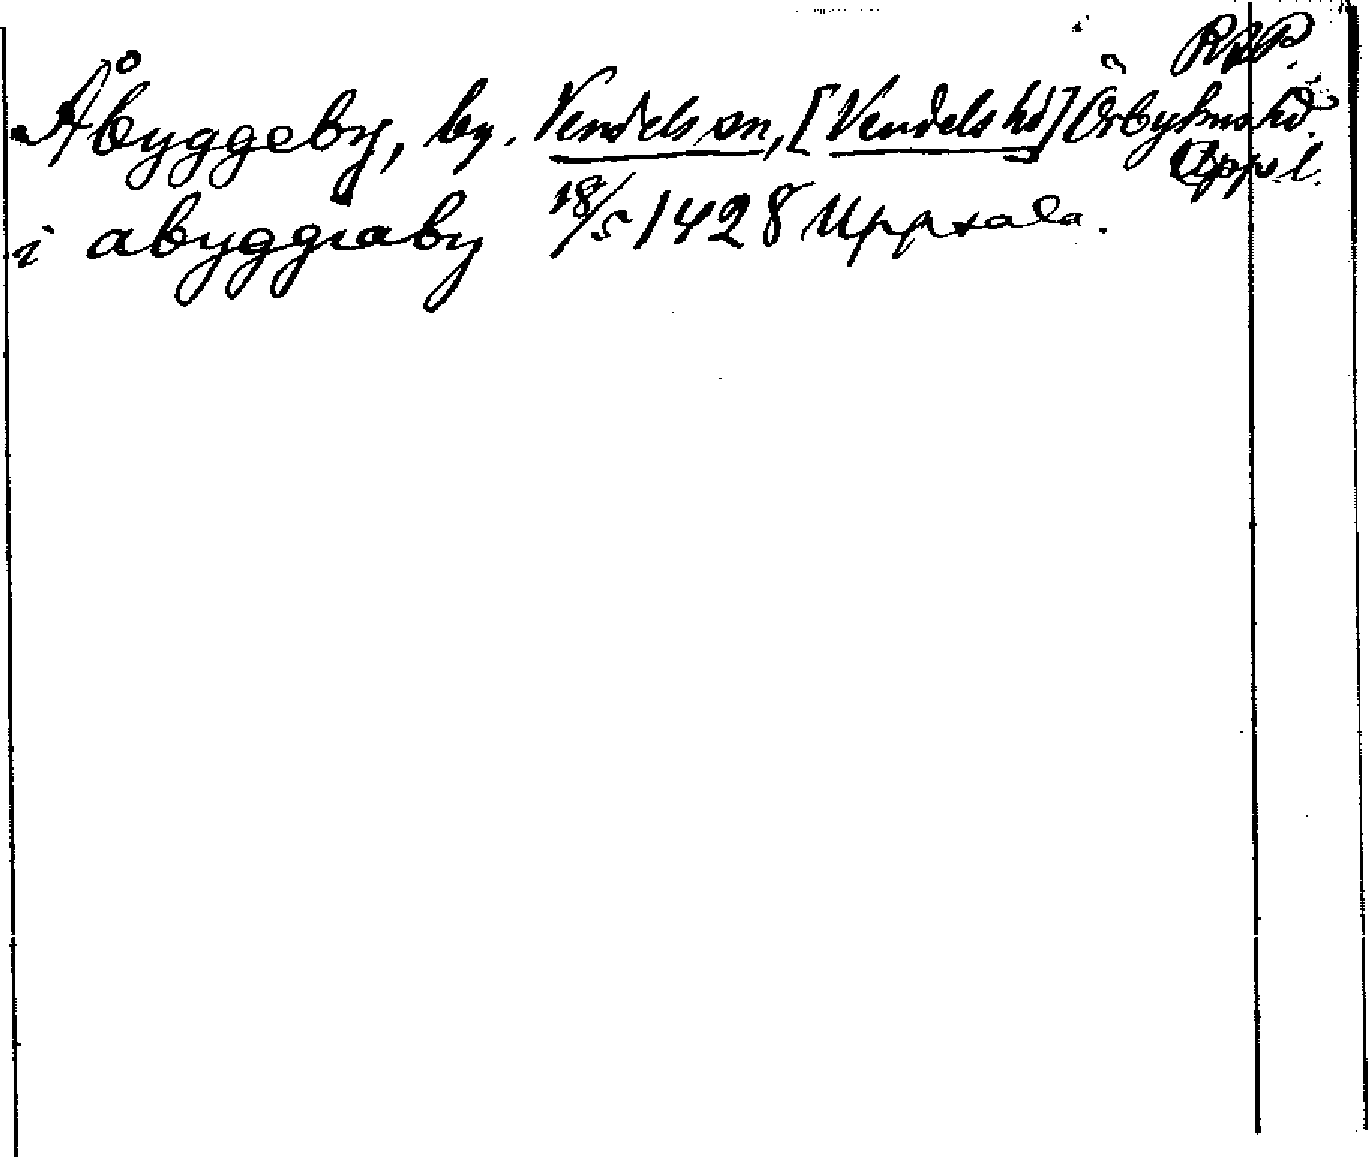 RAP.
Åbyggeby, by. Vendels sn, [Vendels hd] Örbyhus hd.
Uppl.
i abyggiaby 18/5 1428 Uppsala.